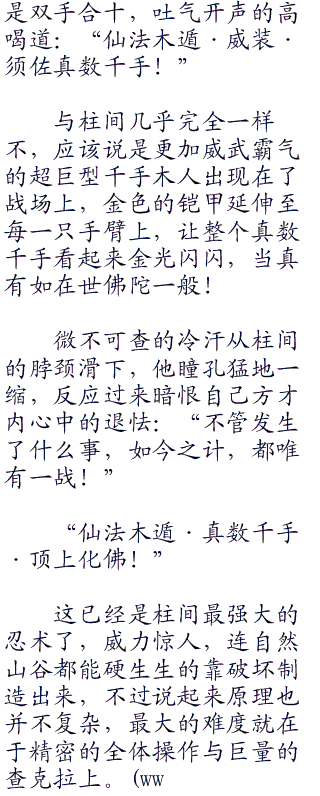 是双手合十，吐气开声的高
喝道：“仙法木遁·威装·
须佐真数千手！”
与柱间几乎完全一样
不，应该说是更加威武霸气
的超巨型千手木人出现在了
战场上，金色的铠甲延伸至
每一只手臂上，让整个真数
千手看起来金光闪闪，当真
有如在世佛陀一般！
微不可查的冷汗从柱间
的脖颈滑下，他瞳孔猛地一
缩，反应过来暗恨自己方才
内心中的退怯：“不管发生
了什么事，如今之计，都唯
有一战！”
“仙法木遁·真数千手
·顶上化佛！”
这已经是柱间最强大的
忍术了，威力惊人，连自然
山谷都能硬生生的靠破坏制
造出来，不过说起来原理也
并不复杂，最大的难度就在
于精密的全体操作与巨量的
查克拉上。(ww